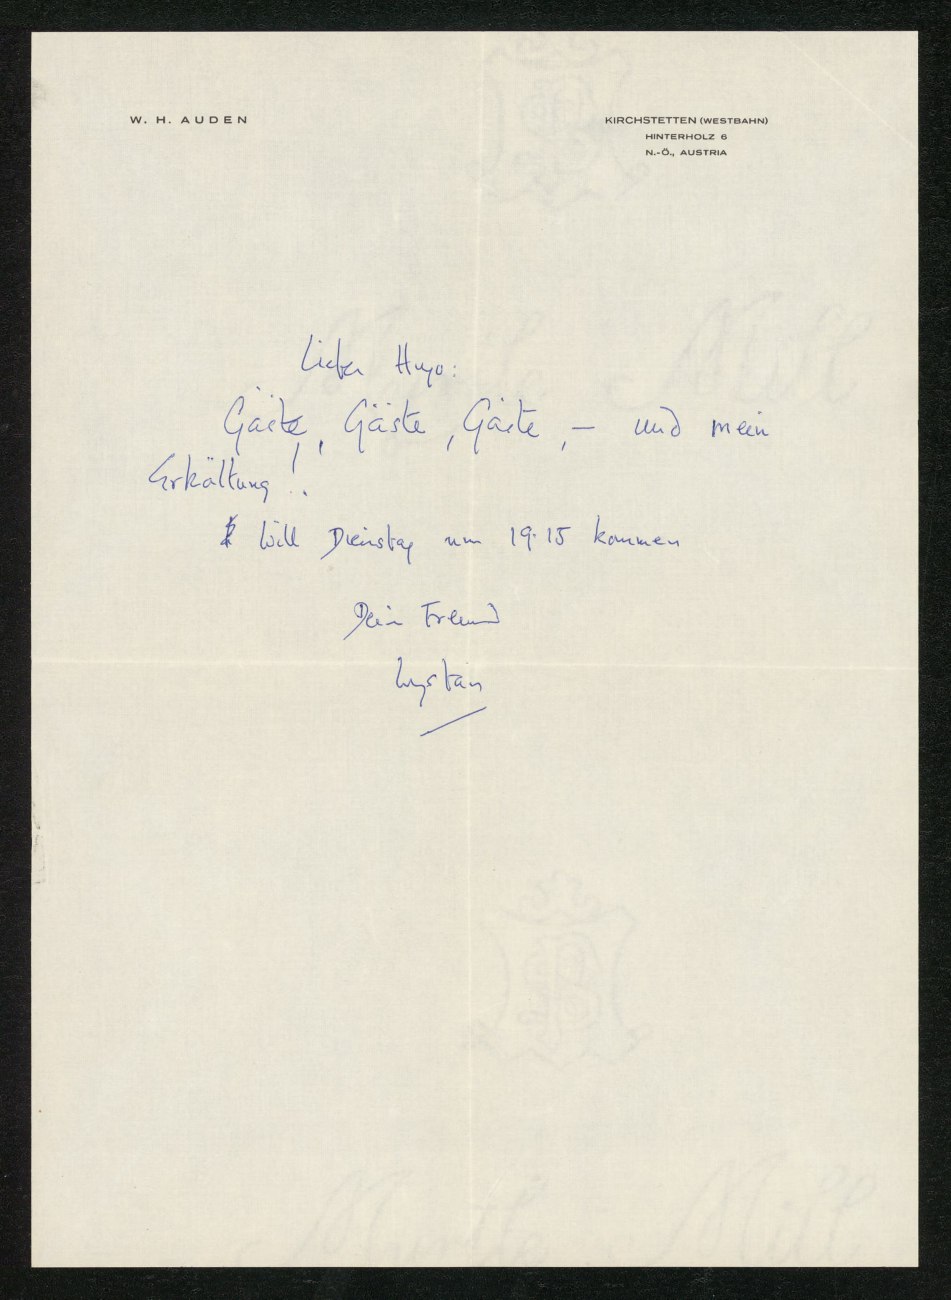 W. H. AUDEN
KIRCHSTETTEN (WESTBAHN)
HINTERHOLZ 6
N.-Ö., AUSTRIA
Lieber Hugo:
Gäste, Gäste, Gäste, — und mein
Erkältung!.
Will Dienstag um 19.15 kommen
Dein Freund
Wystan